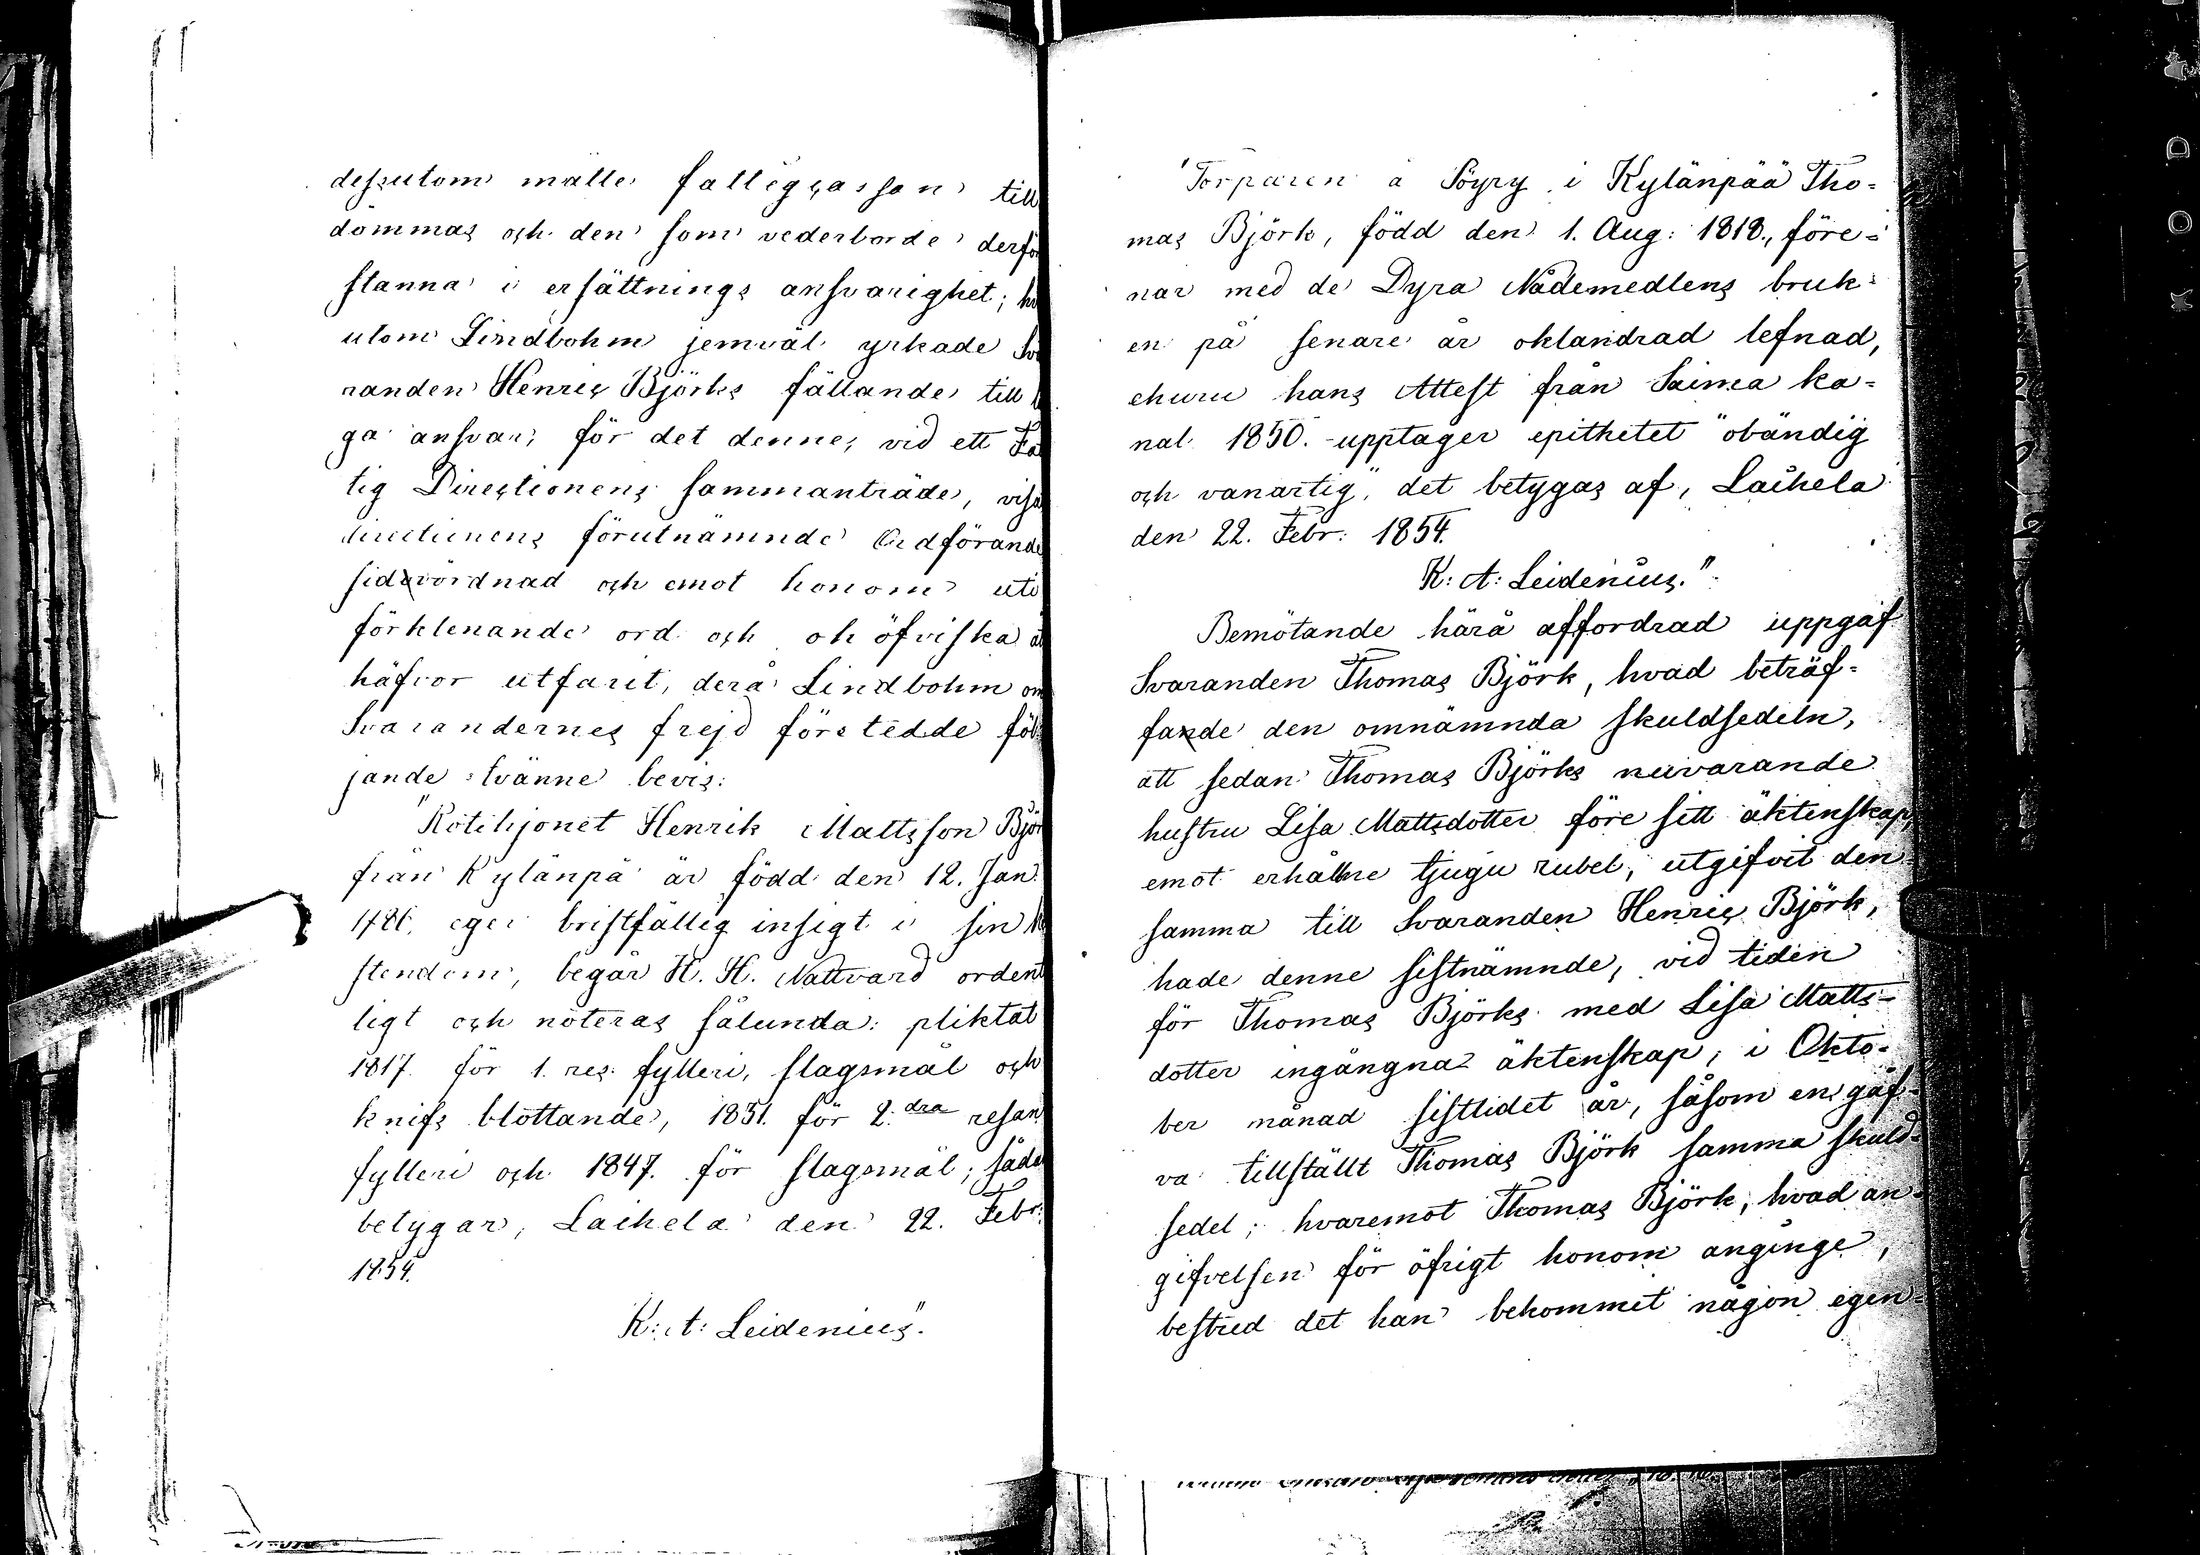 dessutom målle fattigcassan till
dömmas och den som vederborde derför
stanna i ersättnings ansvarighet;
utom Lindbohm jemväl yrkade Sva
randen Henric Björks fällande till
ga ansvar, för det denne, vid ett Fa
tig Directionens sammanträde, visa
directionens förutnämnde Ordförande
sidovördnad och emot honom uti
förklenande ord och ohöfviska åt
häfvor utfarit, derå Lindbohm om
Svarandernes frejd företedde föl-
jande tvänne bevis:
"Rotehjonet Henrik Mattsson Björ
från Kylänpä är född den 12. Jan.
1786. eger bristfällig insigt i sin
stendom, begår H. H. Nattvard ordent
ligt och noteras sålunda: pliktat
1817. för 1. res. fylleri, slagsmål och
knifs blottande, 1831. för 2.dra resan
fylleri och 1847. för slagsmål; såda
betygar, Laihela den 22. Febr:
1854.
K: A: Leidenius".
"Torparen å Söyry i Kylänpää Tho-
mas Björk, född den 1. Aug: 1818., före-
nar med de Dyra Nådemedlens bruk
en på senare år oklandrad lefnad,
ehuru hans Attest från Saima ka-
nal 1850. upptager epithetet "obändig
och vanartig", det betygas af, Laihela
den 22. Febr: 1854.
K: A: Leidenius."
Bemötande härå affordrad uppgaf
Svaranden Thomas Björk, hvad beträf-
fande den omnämnda skuldsedeln,
att sedan Thomas Björks nuvarande
hustru Lisa Mattsdotter före sitt äktenskap,
emot erhållne tjugu rubel, utgifvit den-
samma till Svaranden Henric Björk,
hade denne sistnämnde, vid tiden
för Thomas Björks med Lisa Matts-
dotter ingångna äktenskap, i Okto-
ber månad sistlidet år, såsom en gåf-
va tillställt Thomas Björk samma skuld-
sedel; hvaremot Thomas Björk, hvad an-
gifvelsen för öfrigt honom anginge,
bestred det han bekommit någon egen-